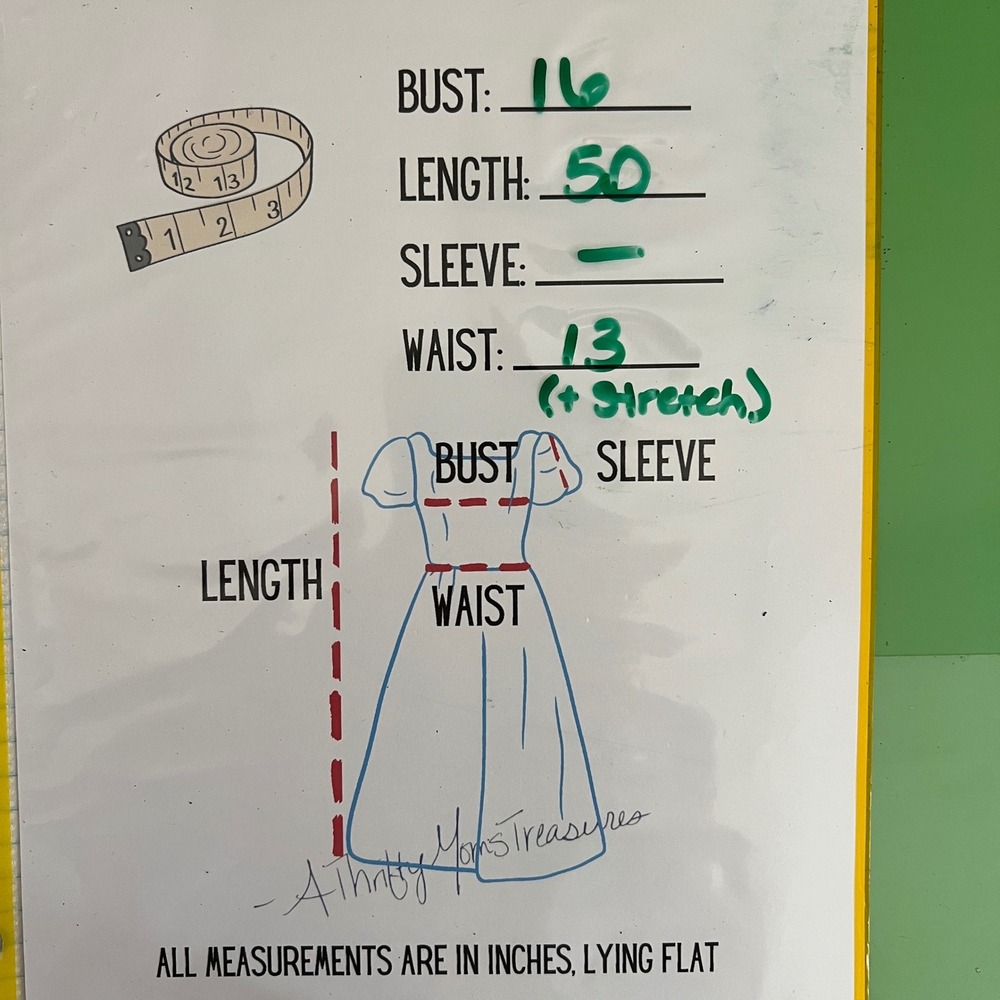 BUST: 16
LENGTH: 50
SLEEVE: —
WAIST: 13
(+ stretch)
12 13
1 2 3
BUST SLEEVE
LENGTH
WAIST
- AThriftyMomsTreasures
ALL MEASUREMENTS ARE IN INCHES, LYING FLAT